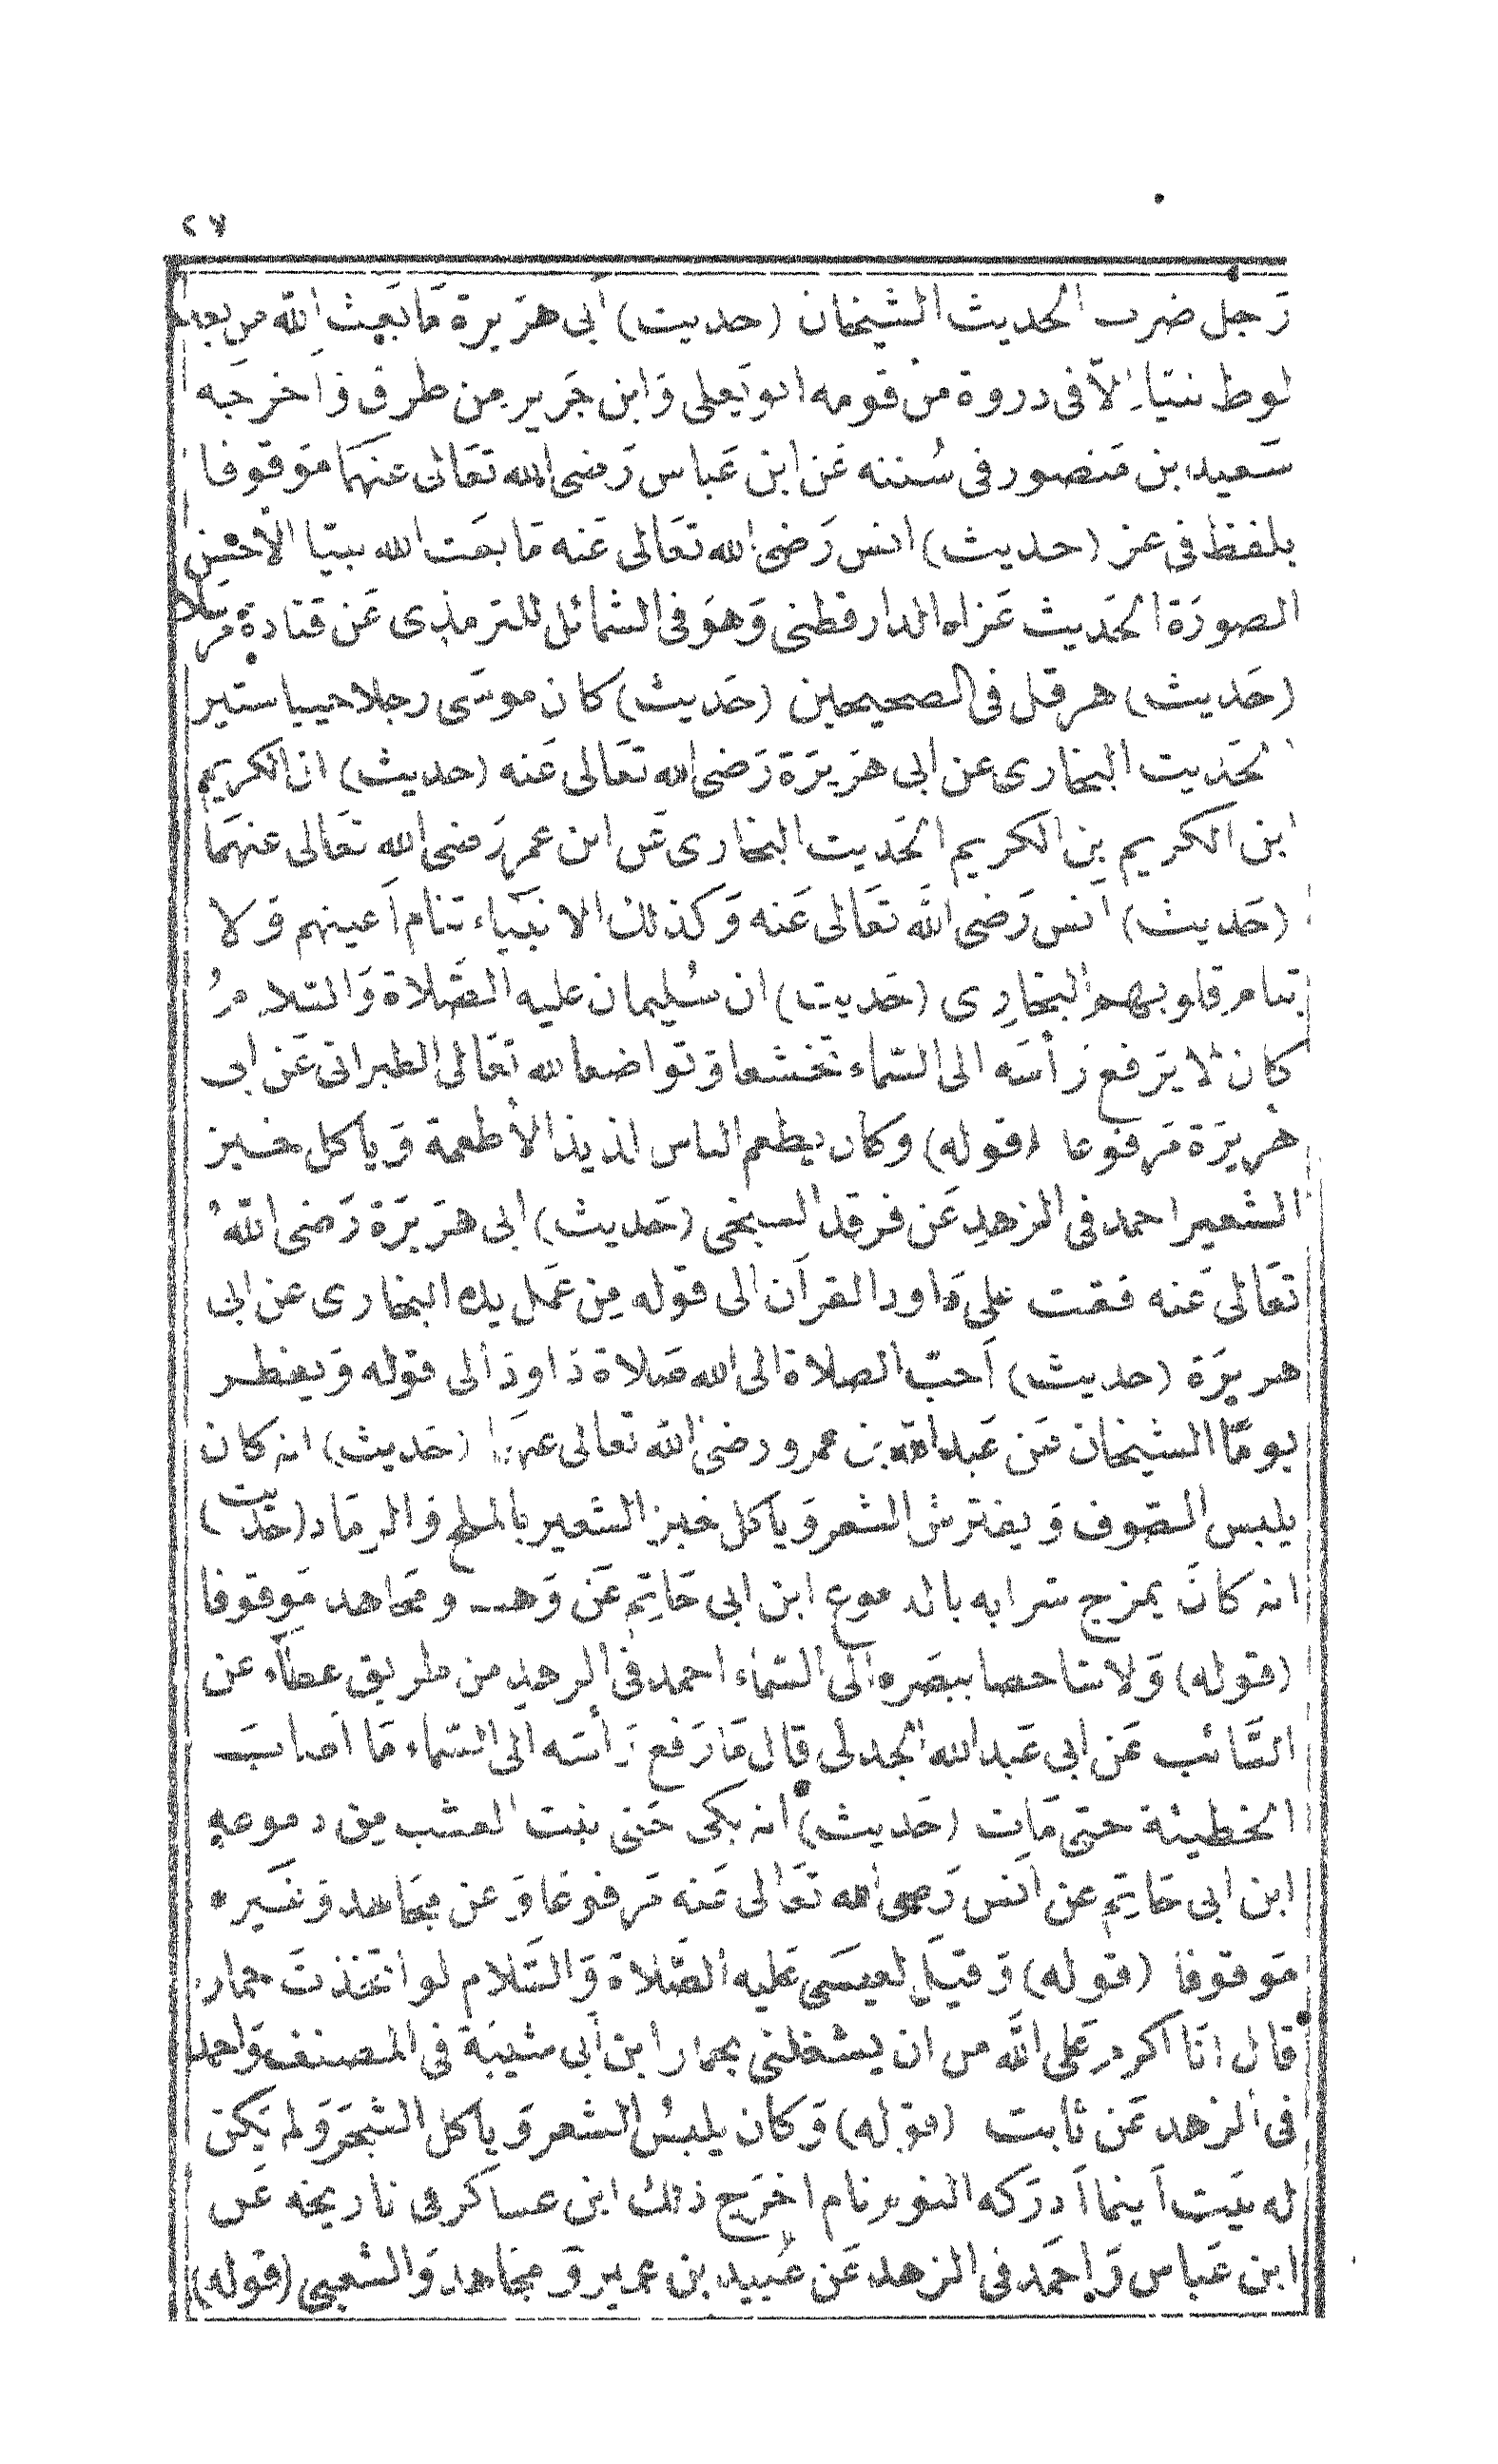 ٢٧
رَجل ضرب الحديث الشيخان (حديث) أبى هرَيرة مَا بَعث الله من بعد
لوط نبيا الا فى دروة من قومه ابو يَعلى وَابن جَرير من طرق وَاَخرجَه
سَعيد بن مَنصور فى سُننه عَن ابن عَباس رَضى الله تعَالى عنهمَا موَقوفا
بلفظ فى عز (حديث) انس رَضى الله تعَالى عَنه مَا بعَث الله نبيا الا حسَن
الصورَة الحَديث عَزاه الدارقطنى وَهوَ فى الشمائل للترمذى عَن قتادة مرسلا
(حَديث) هرقل فى الصحيحين (حَديث) كان موسَى رجلا حييا ستير
الحَديث البخارى عن ابى هرَيرَة رَضى الله تعَالى عَنه (حديث) ان الكريم
ابن الكريم بن الكريم الحَديث البخارى عَن ابن عمر رَضى الله تعَالى عنهمَا
(حَديث) اَنس رَضى الله تعَالى عَنه وَكذلك الانبيَاء تنام اَعينهم وَلا
تنام قلوبهم البخارى (حَديث) ان سُليمان عليه الصَّلاة وَالسّلامُ
كان لا يَرفع رَأسَه الى السّماء تخشعا وَتواضعا لله تعَالى الطبرانى عَن ابى
هريرَة مَرفوعا (قوله) وكان يطعم الناس لذيذ الأطعمة وَياكل خبز
الشعير احمد فى الزهد عَن فرقد السبخى (حَديث) ابى هرَيرَة رَضى اللّهُ
تعَالى عَنه خففت على دَاود القراَن الى قوله مِن عَمل يده البخارى عن ابى
هريرَة (حديث) اَحبّ الصلاة الى الله صَلاة دَاودَ الى قوله وَيفطر
يومًا الشيخان عَن عَبد الله بن عمرو رضى الله تعالى عنهما (حَديث) انه كان
يلبس الصّوف وَيفترش الشعر وَياكل خبز الشعير بالملح وَالرمَاد (حَديث)
انه كانَ يمزج شرابه بالدموع ابن ابى حَاتِم عَن وَهب ومجَاهد مَوقوفا
(قوله) وَلا شاخصا ببصَره الى السّماء احمد فى الزهد من طريق عطاء عن
السَّائب عَن ابى عَبد الله الجدلى قال مَا رَفع رَأسَه الى السّماء مَا اَصابَ
الخطيئة حتى مَات (حَديث) انه بكى حَتى نبت العشب مِن دموعه
ابن ابى حَاتِم عن اَنس رَضى الله تعَالى عَنه مَرفوعَا وَعن مجَاهد وَغيره
مَوقوفا (قوله) وَقيل لعيسَى عَليه الصَّلاة وَالسَّلام لو اتخذتَ حمارا
قال انَا اكرم عَلى اللّه من ان يشغلنى بحمار ابن أبى شيبَة فى المصنف وَاحمد
فى الزهد عَن ثابت (قوله) وَكان يلبسُ الشعر وَياكل الشجرَ وَلم يَكن
له بَيت اَينما اَدرَكه النوم نام اخرَج ذلك ابن عسَاكر فى تاريخه عَن
ابن عَباس وَاحمَد فى الزهد عَن عُبيد بن عمير وَمجَاهد وَالشعبى (قوله)